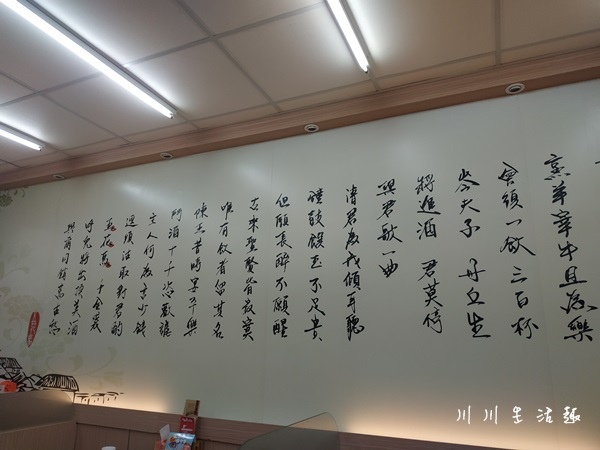 烹羊宰牛且為樂
會須一飲三百杯
岑夫子 丹丘生
將進酒 君莫停
與君歌一曲
請君為我傾耳聽
鐘鼓饌玉不足貴
但願長醉不願醒
古來聖賢皆寂寞
唯有飲者留其名
陳王昔時宴平樂
斗酒十千恣歡謔
主人何為言少錢
逕須沽取對君酌
五花馬 千金裘
呼兒將出換美酒
與爾同銷萬古愁
川川生活趣